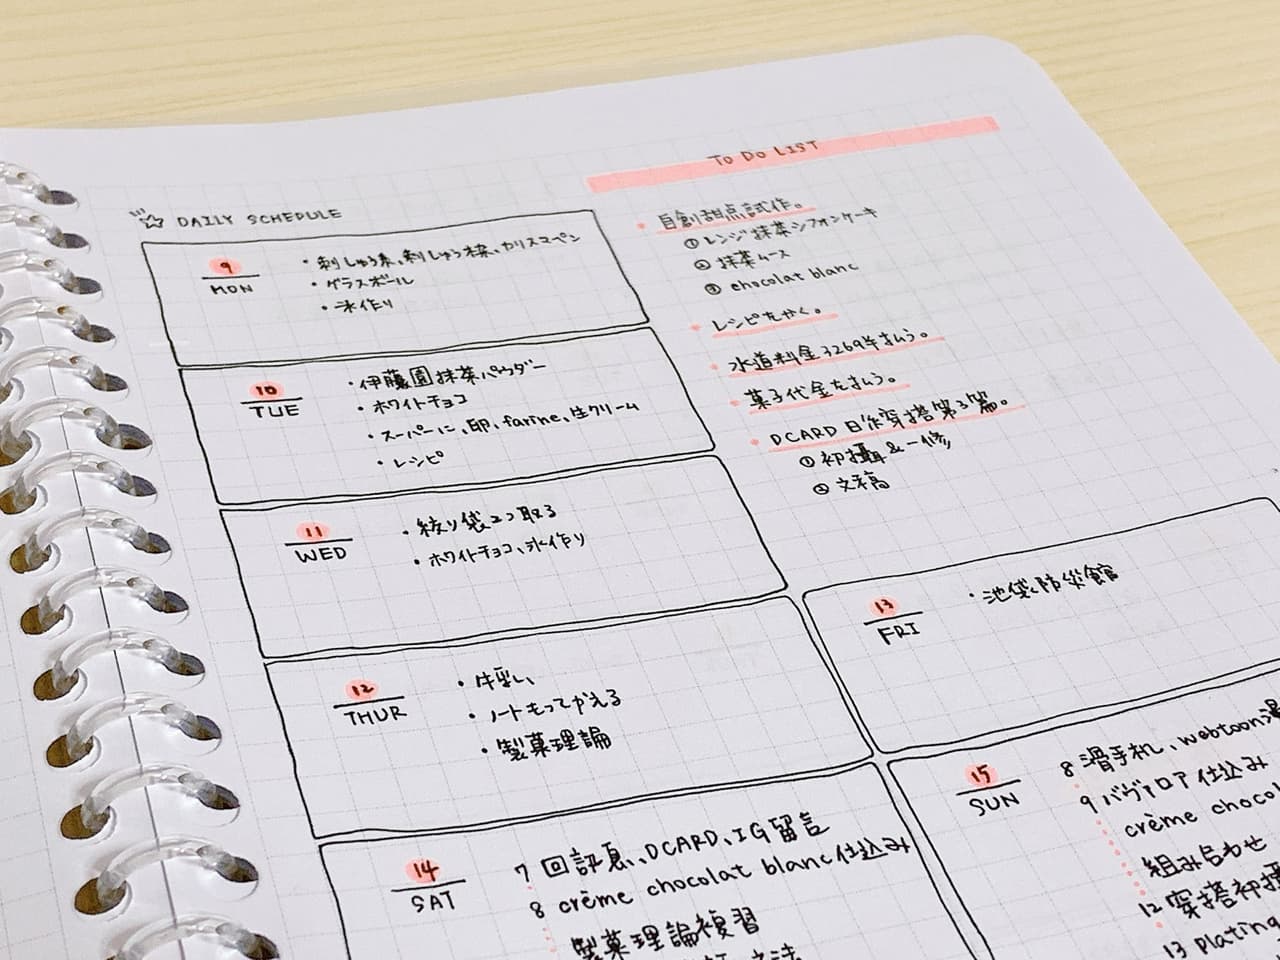 DAILY SCHEDULE
9
MON
・刺しゅう糸、刺しゅう枠、カリスマペン
・グラスボール
・氷作り
10
TUE
・伊藤園抹茶パウダー
・ホワイトチョコ
・スーパーに、卵、farine、生クリーム
・レシピ
11
WED
・絞り袋2つ取る
・ホワイトチョコ、氷作り
12
THUR
・牛乳
・ノートもってかえる
・製菓理論
14
SAT
7 回訊息、DCARD、IG留言
8 crème chocolat blanc仕込み
製菓理論複習
TO DO LIST
・自創甜点試作。
① レンジ抹茶シフォンケーキ
② 抹茶ムース
③ chocolat blanc
・レシピをかく。
・水道料金3269半払う。
・菓子代金を払う。
・DCARD日作穿搭第3篇。
① 初攝&一修
② 文稿
13
FRI
・池袋防災館
15
SUN
8 滑手机、webtoon
9 バヴァロア仕込み
crème chocol
組み合わせ
12 穿搭初攝
13 plating